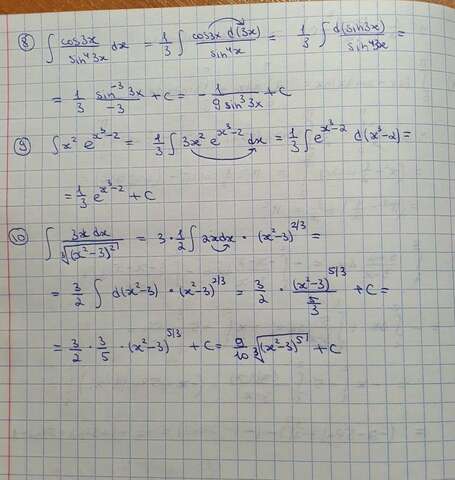 ⑧ ∫ cos3x / sin⁴3x dx = 1/3 ∫ cos3x d(3x) / sin⁴x = 1/3 ∫ d(sin3x) / sin⁴3x =
= 1/3 sin⁻³3x / -3 + C = - 1 / 9 sin³3x + C
⑨ ∫ x² e^(x³-2) = 1/3 ∫ 3x² e^(x³-2) dx = 1/3 ∫ e^(x³-2) d(x³-2) =
= 1/3 e^(x³-2) + C
⑩ ∫ 3x dx / ∛(x²-3)² = 3 · 1/2 ∫ 2x dx · (x²-3)^(2/3) =
= 3/2 ∫ d(x²-3) · (x²-3)^(2/3) = 3/2 · (x²-3)^(5/3) / (5/3) + C =
= 3/2 · 3/5 · (x²-3)^(5/3) + C = 9/10 ∛(x²-3)⁵ + C